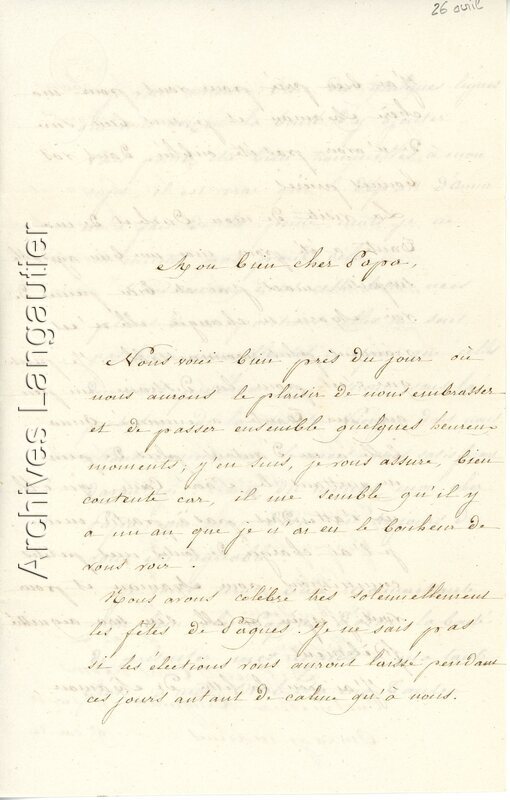 26 avril
Archives Langautier
Mon bien cher Papa,
Nous voici bien près du jour où
nous aurons le plaisir de nous embrasser
et de passer ensemble quelques heureux
moments; j'en suis, je vous assure, bien
contente car, il me semble qu'il y
a un an que je n'ai eu le bonheur de
vous voir.
Nous avons célébré très solennellement
les fêtes de Pâques. Je ne sais pas
si les élections vous auront laissé pendant
ces jours autant de calme qu'à nous.